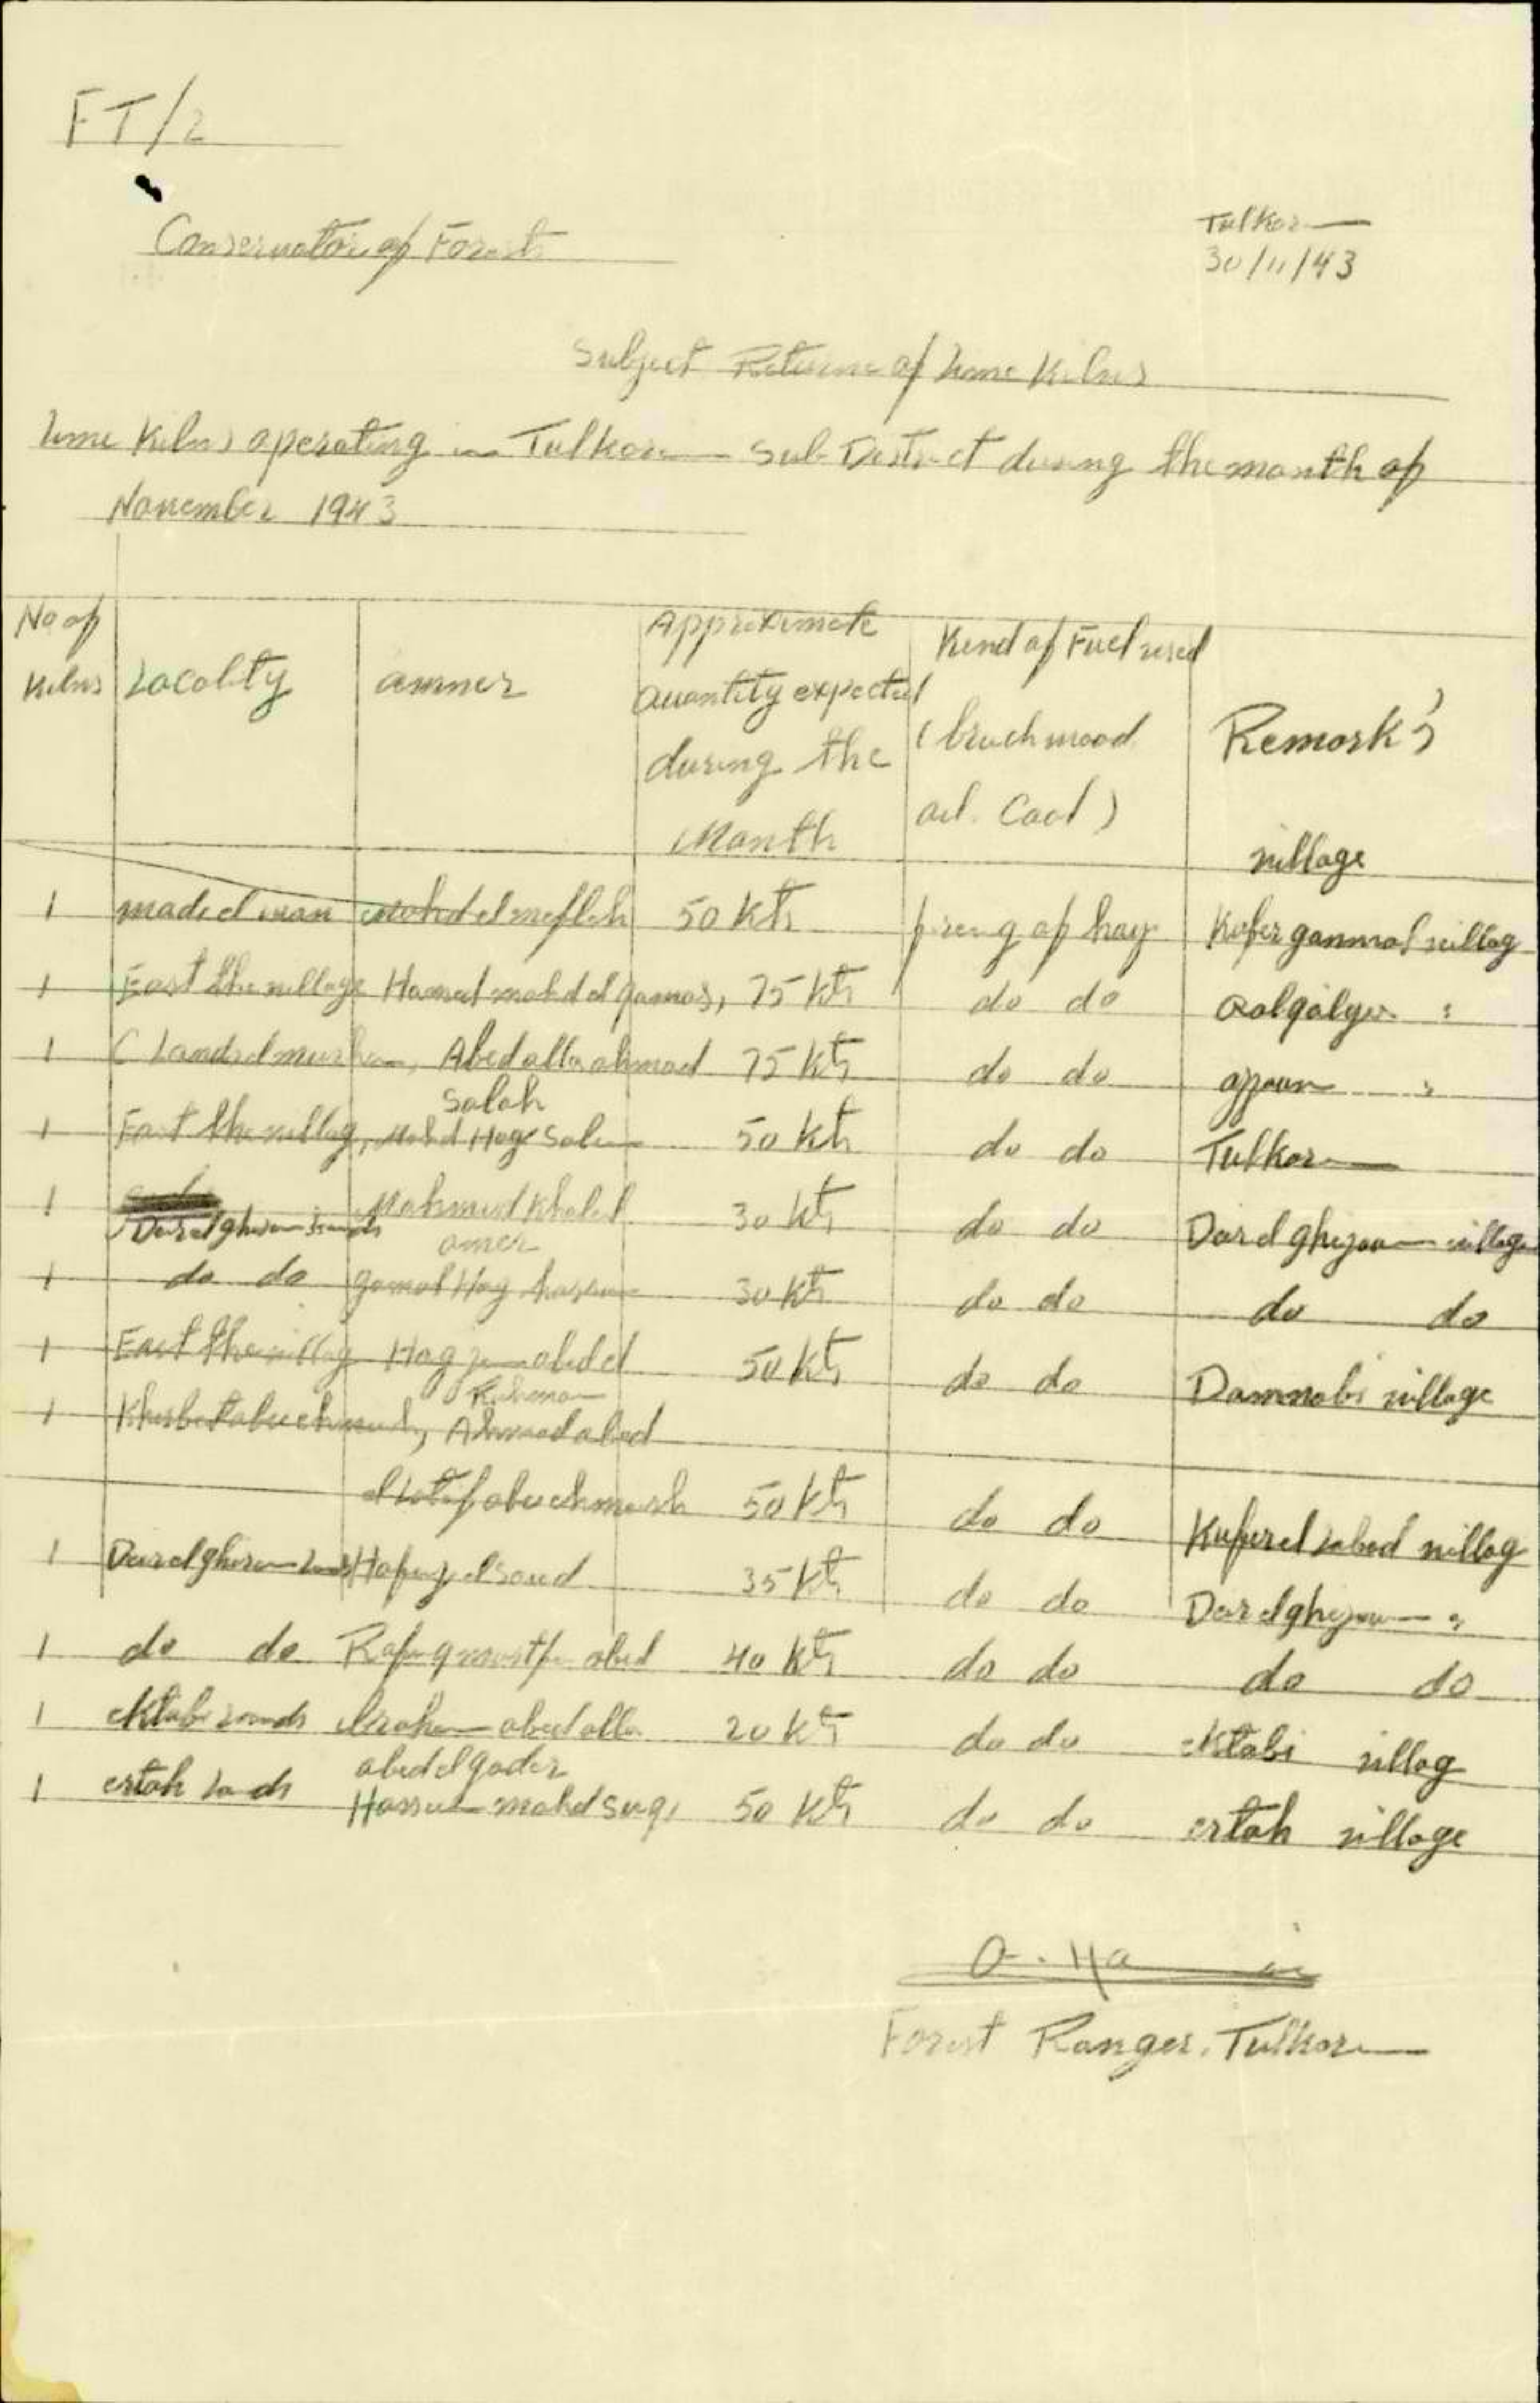 FT/2
Conservator of Forests
Tulkarm
30/11/43
Subject Returne of Lime Kilns
Lime Kilns operating in Tulkarm Sub-District during the month of
November 1943
No of Kilns
Locality
owner
Approximate Quantity expected during the Month
Kind of Fuel used (bruchwood oil. Coal)
Remark's
village
1 wad el Mohd el mefleh 50 Kts firing of hay Kufer gammal villag
1 East the village Hamed mohd el 75 Kts do do :
1 Abed alla ahmad Salah 75 Kts do do "
1 East the villag, Mohd Hag Salem 50 Kts do do Tulkarm
1 Deirel ghusun Lands Mahmud Khalel omer 30 Kts do do Deirel ghusun village
1 do do gamal Hag hassan 30 Kts do do do do
1 East the villag Hag abed el Rahman 50 Kts do do village
1 Khirbet Ahmad abed
el latif 50 Kts do do Kufer el labad villag
1 Deirel ghusun Lands Hafez el saed 35 Kts do do Deirel ghusun "
1 do do Rafeq mostfa abed 40 Kts do do do do
1 ektabi Lands ibrahem abed alla abed el qader 20 Kts do do ektabi villag
1 ertah Lands Hassan mohd 50 Kts do do ertah village
Forest Ranger, Tulkarm